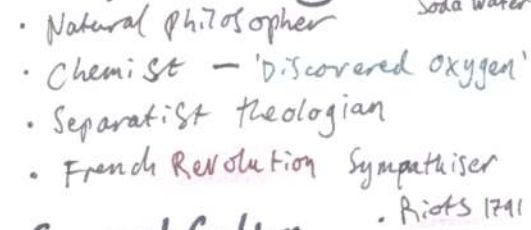 Soda water
· Natural Philosopher
· Chemist — 'Discovered oxygen'
· Separatist theologian
· French Revolution Sympathiser
· Riots 1791